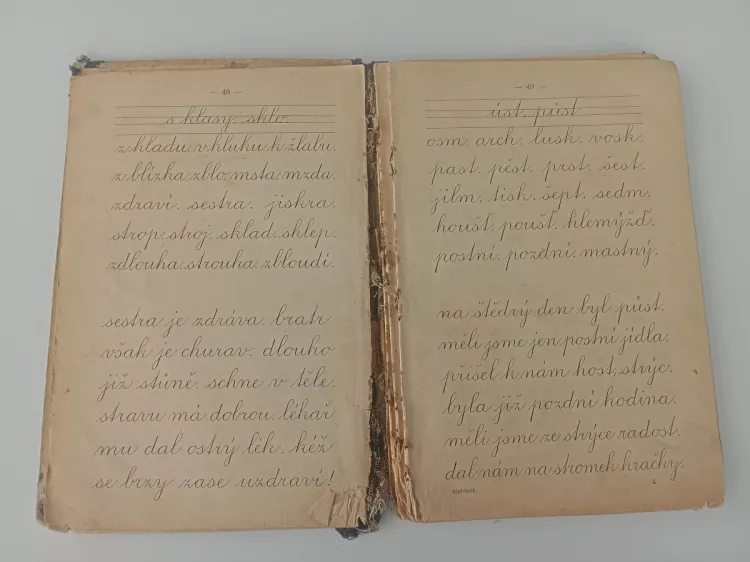 — 48 —
s klasy. sklo.
z hladu. v hluku. k žlabu.
z blízka. zblo. msta. mzda.
zdraví. sestra. jiskra.
strop. stroj. sklad. sklep.
zdlouha. strouha. zbloudí.
sestra je zdráva. bratr
však je churav. dlouho
již stůně. schne v těle.
stravu má dobrou. lékař
mu dal ostrý lék. kéž
se brzy zase uzdraví!
— 49 —
úst. půst
osm. arch. lusk. vosk.
past. pěst. prst. šest.
jilm. tisk. šept. sedm.
houšť. poušť. hlemýžď.
postní. pozdní. mastný.
na štědrý den byl půst.
měli jsme jen postní jídla.
přišel k nám host, strýc.
byla již pozdní hodina.
měli jsme ze strýce radost.
dal nám na stromek hračky.